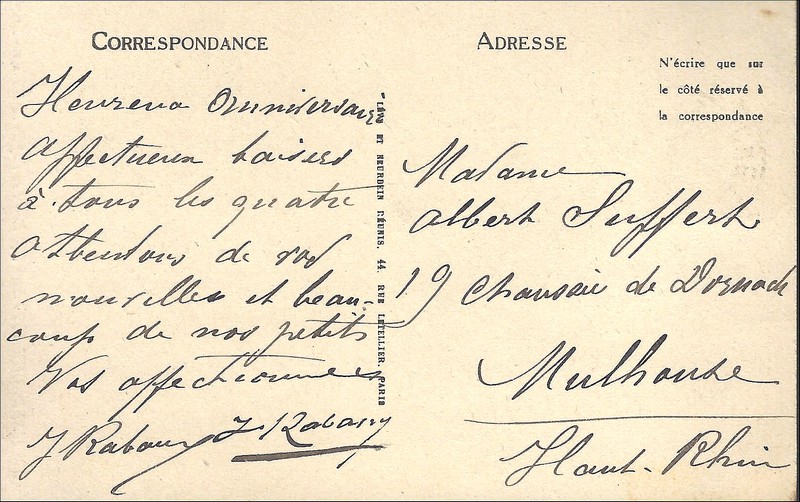 CORRESPONDANCE
Heureux Anniversaire
affectueux baisers
à tous les quatre
Attendons de vos
nouvelles et beau-
coup de nos petits
Vos affectionnés
J Rabany J. Rabany
"LÉVY ET NEURDEIN RÉUNIS, 44, RUE LETELLIER, PARIS
ADRESSE
N'écrire que sur
le côté réservé à
la correspondance
Madame
Albert Suffert
19 Chaussée de Dornach
Mulhouse
Haut-Rhin